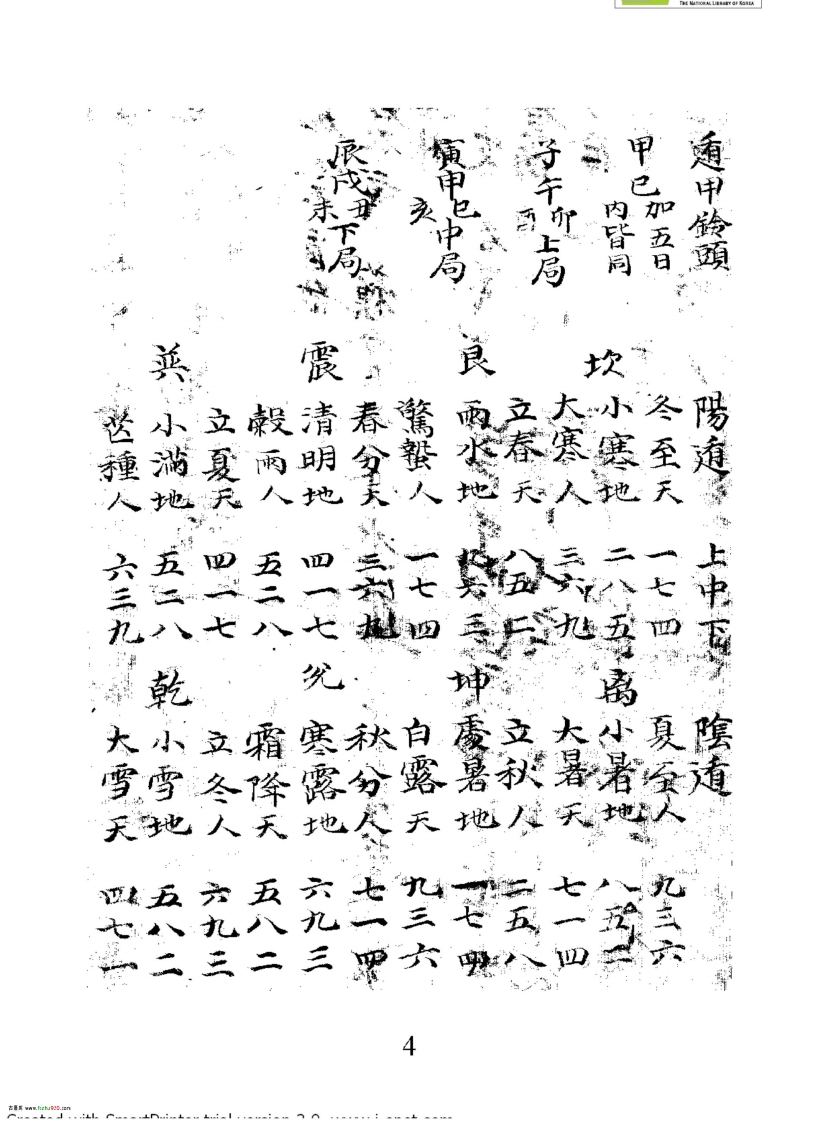 THE NATIONAL LIBRARY OF KOREA
遁甲鈴頭
甲己加五日內皆同
子午卯酉上局
寅申巳亥中局
辰戌丑未下局
陽遁 上中下
坎
冬至天 一七四
小寒地 二八五
大寒人 三六九
艮
立春天 八五二
雨水地 九六三
驚蟄人 一七四
震
春分天 三六九
清明地 四一七
穀雨人 五二八
巽
立夏天 四一七
小滿地 五二八
芒種人 六三九
陰遁
离
夏至人 九三六
小暑地 八五二
大暑天 七一四
坤
立秋人 二五八
處暑地 一七四
白露天 九三六
兌
秋分人 七一四
寒露地 六九三
霜降天 五八二
乾
立冬人 六九三
小雪地 五八二
大雪天 四七一
4